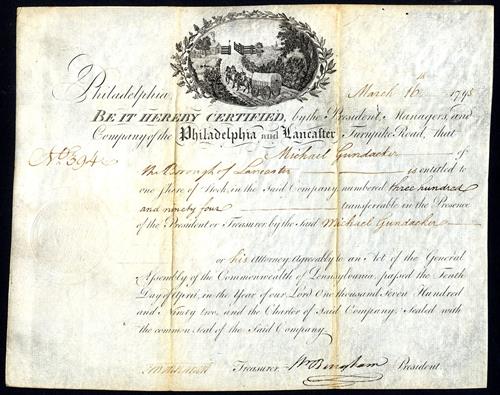 Philadelphia, March 16th 1795
BE IT HEREBY CERTIFIED, by the President, Managers, and
Company of the Philadelphia and Lancaster Turnpike Road, that
No. 394 Michael Gundacker of
the Borough of Lancaster is entitled to
one share of Stock, in the Said Company, numbered three hundred
and ninety four transferrable in the Presence
of the President or Treasurer, by the Said Michael Gundacker
or his Attorney Agreeably to an Act of the General
Assembly of the Commonwealth of Pennsylvania, passed the Tenth
Day of April, in the Year of our Lord One thousand Seven Hundred
and Ninety two, and the Charter of Said Company, Sealed with
the common Seal of the Said Company.
Treasurer. Wm Bingham President.